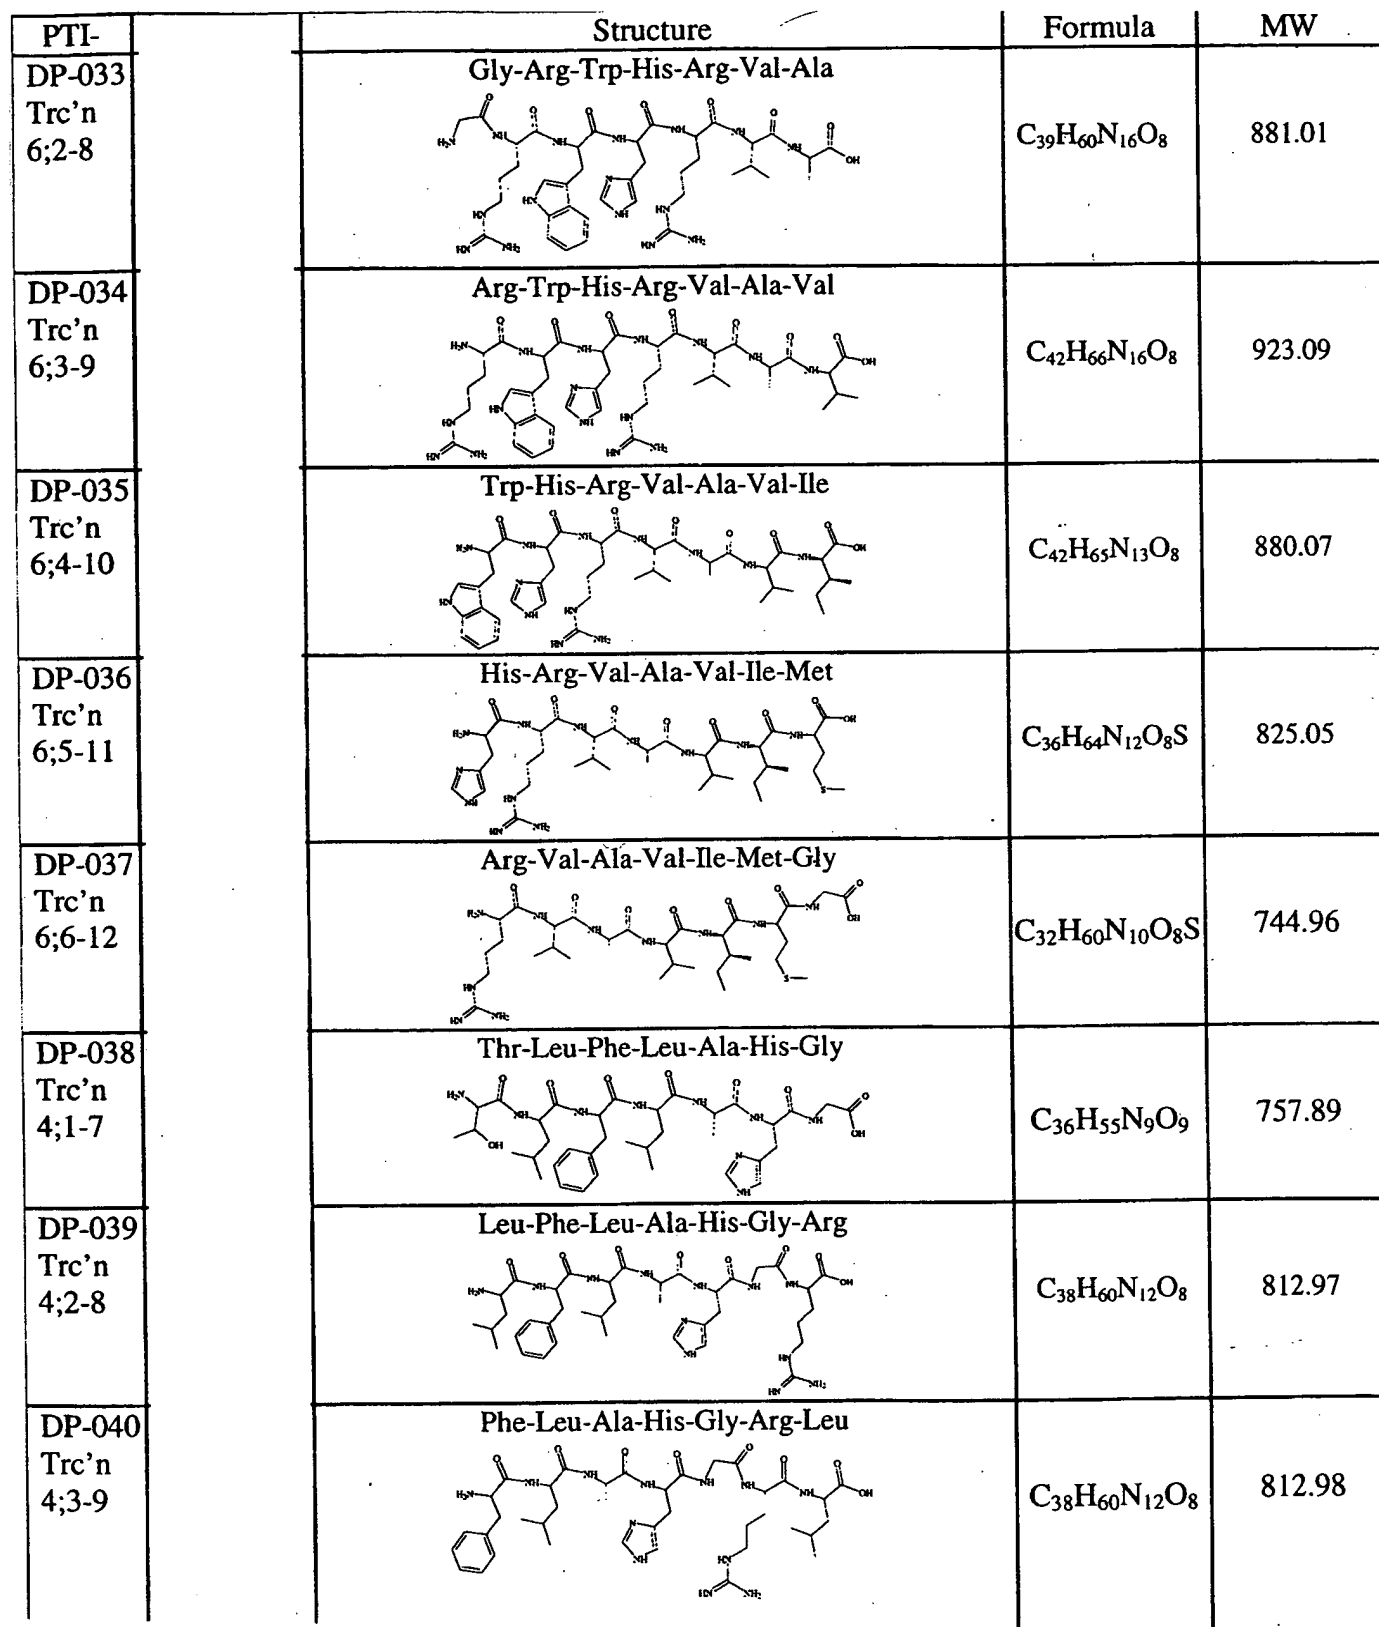 PTI- Structure Formula MW
DP-033 Trc'n 6;2-8 Gly-Arg-Trp-His-Arg-Val-Ala C39H60N16O8 881.01
DP-034 Trc'n 6;3-9 Arg-Trp-His-Arg-Val-Ala-Val C42H66N16O8 923.09
DP-035 Trc'n 6;4-10 Trp-His-Arg-Val-Ala-Val-Ile C42H65N13O8 880.07
DP-036 Trc'n 6;5-11 His-Arg-Val-Ala-Val-Ile-Met C36H64N12O8S 825.05
DP-037 Trc'n 6;6-12 Arg-Val-Ala-Val-Ile-Met-Gly C32H60N10O8S 744.96
DP-038 Trc'n 4;1-7 Thr-Leu-Phe-Leu-Ala-His-Gly C36H55N9O9 757.89
DP-039 Trc'n 4;2-8 Leu-Phe-Leu-Ala-His-Gly-Arg C38H60N12O8 812.97
DP-040 Trc'n 4;3-9 Phe-Leu-Ala-His-Gly-Arg-Leu C38H60N12O8 812.98